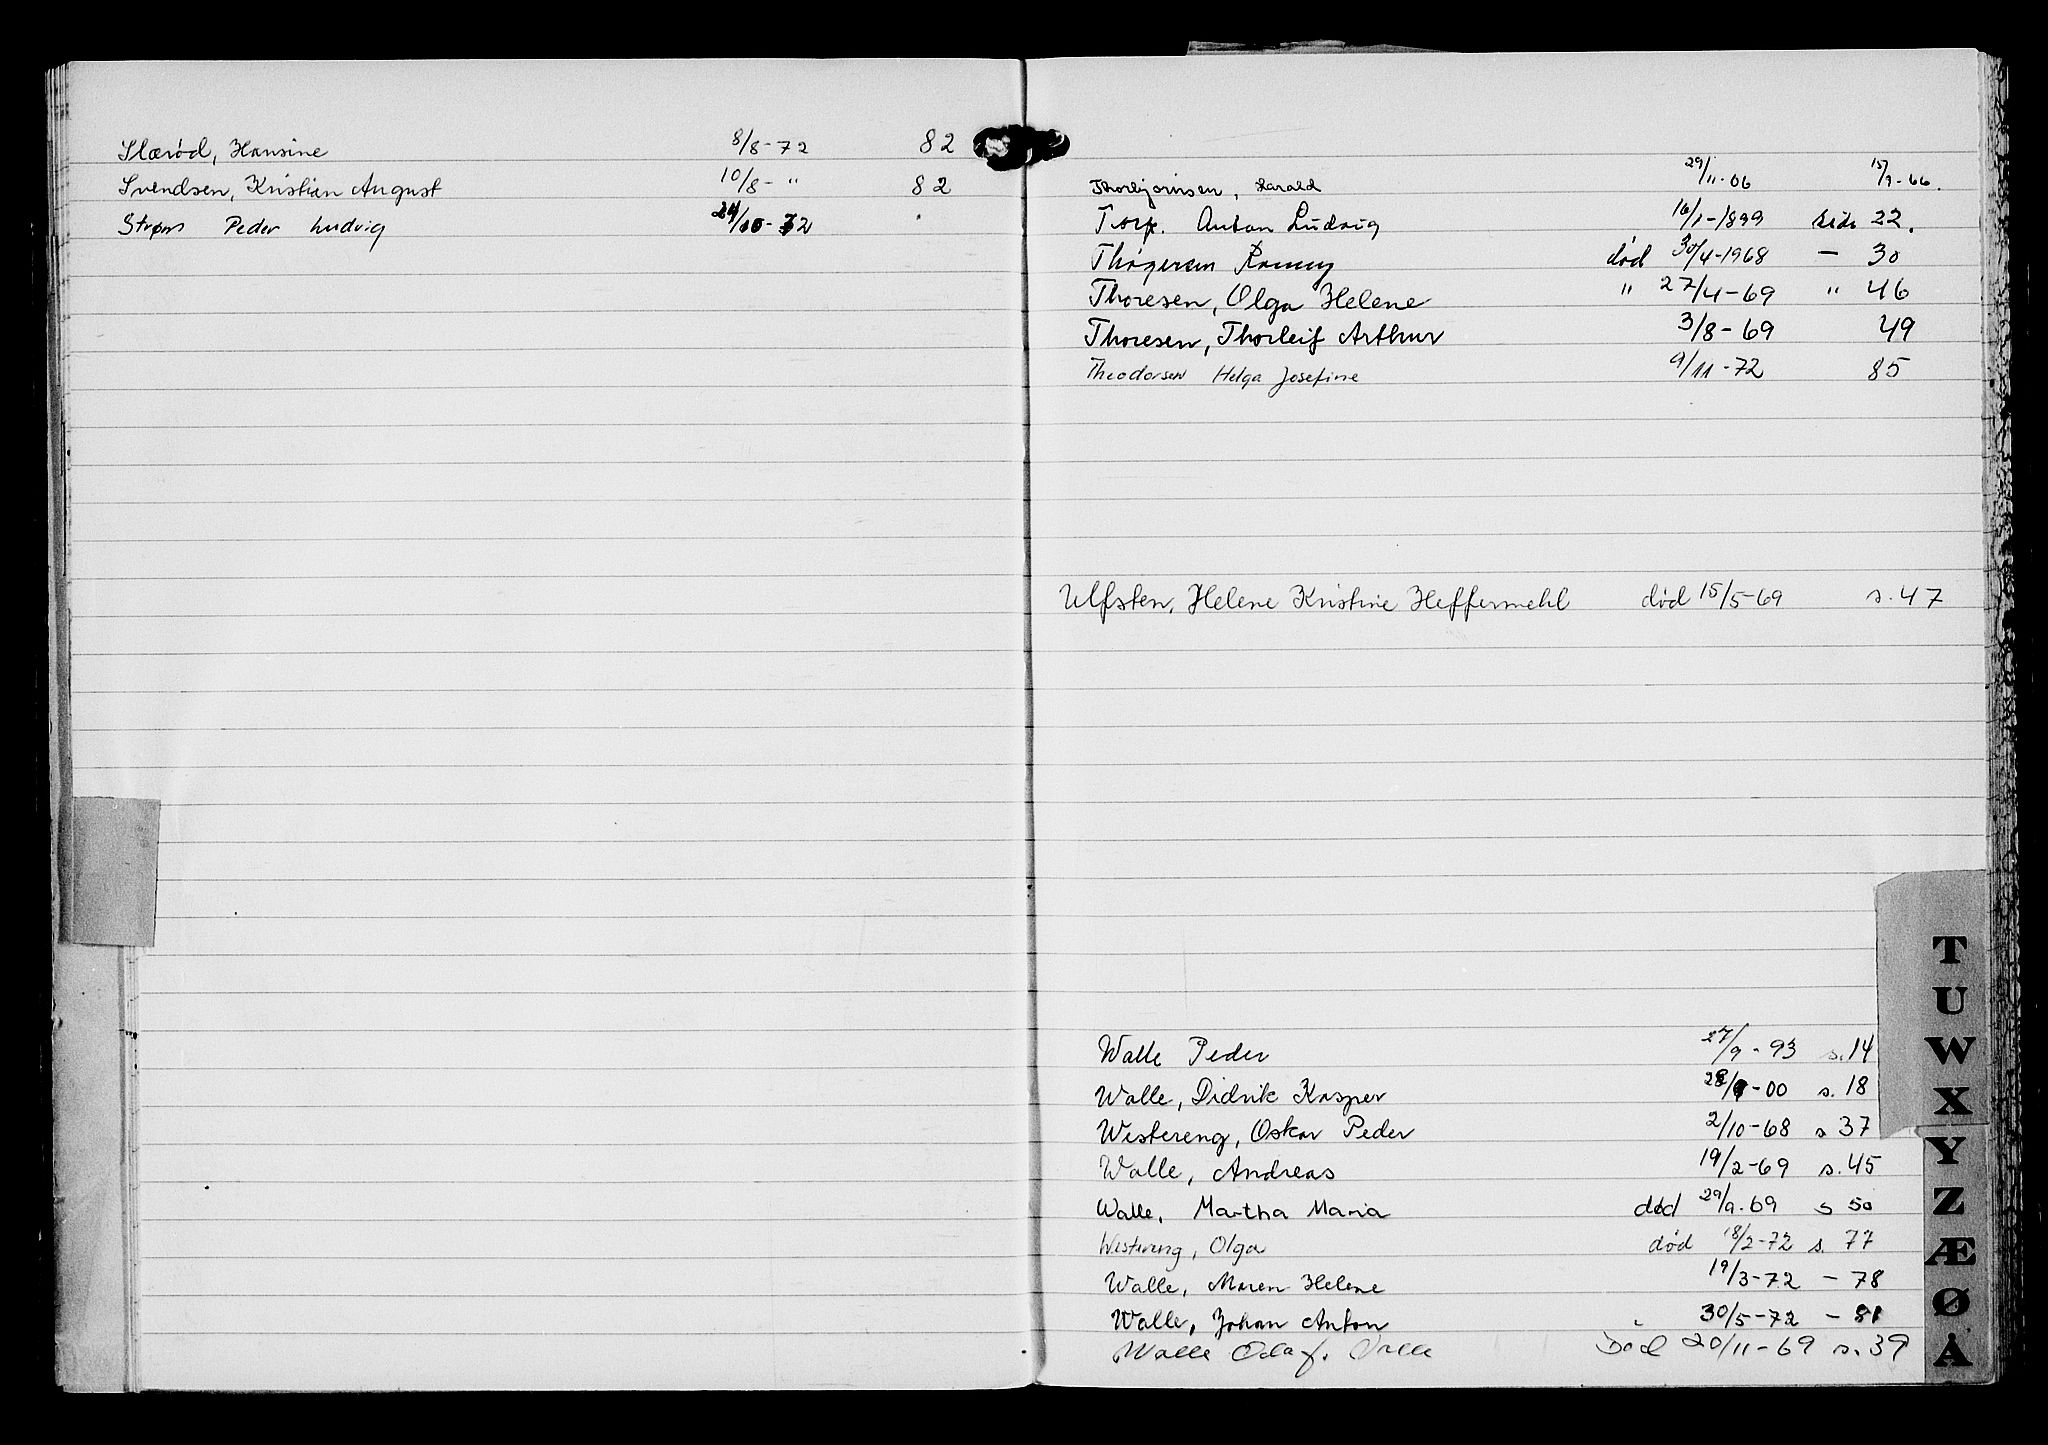 Slærød, Hansine 8/8-72 82
Svendsen, Kristian August 10/8- " 82
Strøm Peder Ludvig 24/10-72
Thorbjørnsen, Harald 29/11-06 15/9-66.
Torp. Anton Ludvig 16/1-1899 side 22.
Thøgersen Ronny død 30/4-1968 — 30
Thoresen, Olga Helene " 27/4-69 " 46
Thoresen, Thorleif Arthur 3/8-69 49
Theodorsen Helga Josefine 9/11-72 85
Ulfsten, Helene Kristine Heffermehl død 15/5-69 s.47
Walle Peder 27/9-93 s.14
Walle, Didrik Kasper 28/9-00 s.18
Westereng, Oskar Peder 2/10-68 s 37
Walle, Andreas 19/2-69 s.45
Walle, Martha Maria død 29/9.69 s 50
Westereng, Olga død 18/2-72 s. 77
Walle, Maren Helene 19/3-72 — 78
Walle, Johan Anton 30/5-72 — 81
Walle Olaf. Død 20/11-69 s.39
T
U
W
X
Y
Z
Æ
Ø
Å